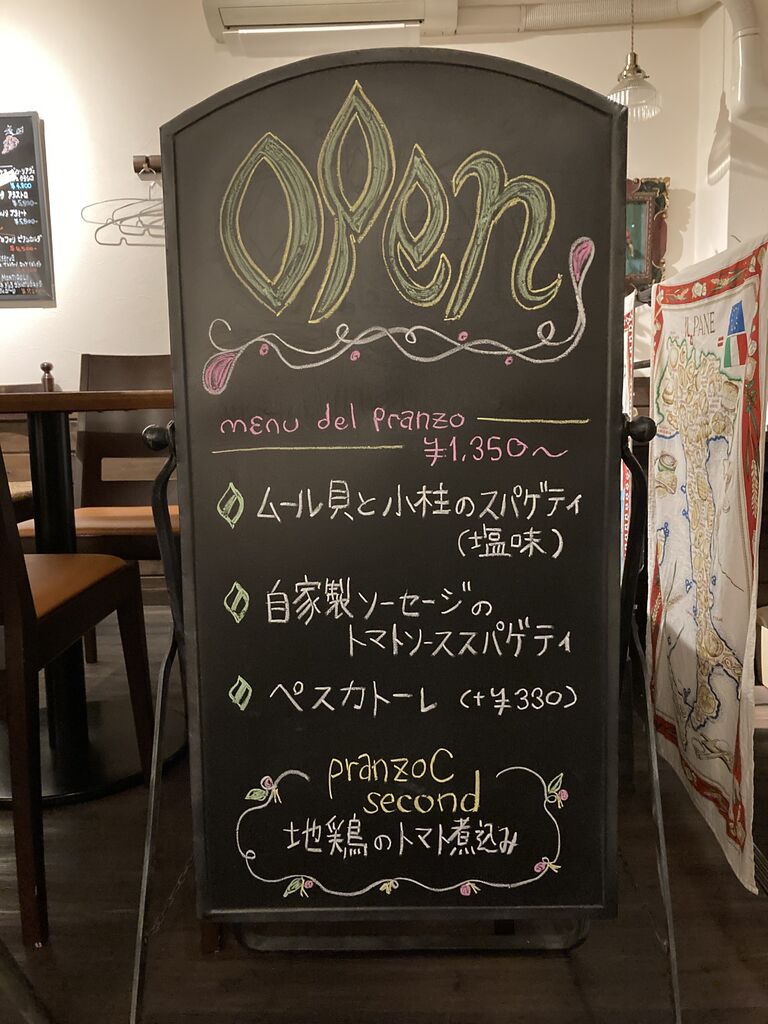 open
menu del pranzo
¥1,350～
ムール貝と小柱のスパゲティ
(塩味)
自家製ソーセージの
トマトソーススパゲティ
ペスカトーレ (+¥330)
pranzo C
second
地鶏のトマト煮込み
IL PANE